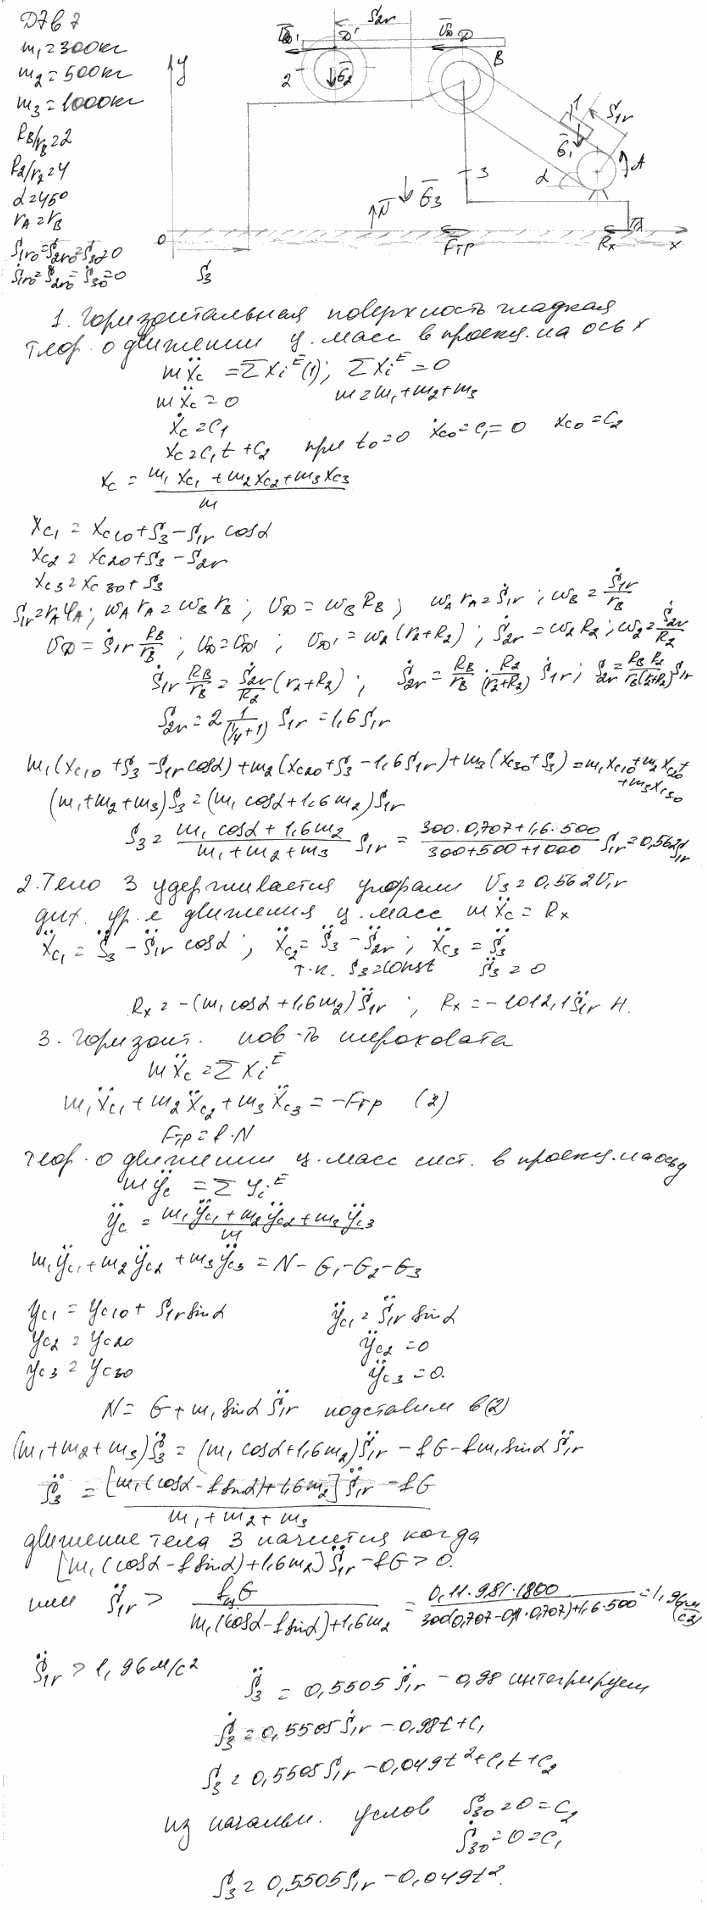 Д7В7
m₁=300кг
m₂=500кг
m₃=1000кг
R_B/r_B=2
R₂/r₂=4
α=45°
r_A=r_B
S₁r₀=S₂r₀=S₃₀=0
Ṡ₁r₀=Ṡ₂r₀=Ṡ₃₀=0
y S₂r D' D B 2 G̅₂ 1 S₁r G̅₁ A α 3 N̅ G̅₃ O S₃ Fтр Rx x
1. Горизонтальная поверхность гладкая
Теор. о движении ц. масс в проекц. на ось x
mẍc = ΣXiᴱ (1); ΣXiᴱ = 0
mẍc = 0 m=m₁+m₂+m₃
ẋc = C₁
xc = C₁t + C₂ при t₀=0 ẋc₀=C₁=0 xc₀=C₂
xc = (m₁xc₁ + m₂xc₂ + m₃xc₃)/m
xc₁ = xc₁₀ + S₃ − S₁r cosα
xc₂ = xc₂₀ + S₃ − S₂r
xc₃ = xc₃₀ + S₃
S₁r = r_Aφ_A; ω_A r_A = ω_B r_B; υ_D = ω_B R_B; ω_A r_A = Ṡ₁r; ω_B = Ṡ₁r/r_B
υ_D = Ṡ₁r R_B/r_B; υ_D = υ_D'; υ_D' = ω₂(r₂+R₂); Ṡ₂r = ω₂R₂; ω₂ = Ṡ₂r/R₂
Ṡ₁r R_B/r_B = Ṡ₂r/R₂ (r₂+R₂); Ṡ₂r = R_B/r_B · R₂/(r₂+R₂) Ṡ₁r; S₂r = R_B R₂/r_B(r₂+R₂) S₁r
S₂r = 2 1/(1/4+1) S₁r = 1,6S₁r
m₁(xc₁₀ + S₃ − S₁r cosα) + m₂(xc₂₀ + S₃ − 1,6S₁r) + m₃(xc₃₀ + S₃) = m₁xc₁₀ + m₂xc₂₀ + m₃xc₃₀
(m₁+m₂+m₃)S₃ = (m₁ cosα + 1,6m₂)S₁r
S₃ = (m₁ cosα + 1,6m₂)/(m₁+m₂+m₃) S₁r = (300·0,707+1,6·500)/(300+500+1000) S₁r = 0,562 S₁r
2. Тело 3 удерживается упорами υ₃ = 0,562υ₁r
диф. ур. е движения ц. масс mẍc = Rx
ẍc₁ = S̈₃ − S̈₁r cosα; ẍc₂ = S̈₃ − S̈₂r; ẍc₃ = S̈₃
т.к. S₃ = const S̈₃ = 0
Rx = −(m₁ cosα + 1,6m₂)S̈₁r; Rx = −1012,1S̈₁r Н.
3. Горизонт. пов-ть шероховата
mẍc = ΣXiᴱ
m₁ẍc₁ + m₂ẍc₂ + m₃ẍc₃ = −Fтр (2)
Fтр = f·N
Теор. о движении ц. масс сист. в проекц. на ось y
mÿc = ΣYiᴱ
ÿc = (m₁ÿc₁ + m₂ÿc₂ + m₃ÿc₃)/m
m₁ÿc₁ + m₂ÿc₂ + m₃ÿc₃ = N − G₁ − G₂ − G₃
yc₁ = yc₁₀ + S₁r sinα ÿc₁ = S̈₁r sinα
yc₂ = yc₂₀ ÿc₂ = 0
yc₃ = yc₃₀ ÿc₃ = 0.
N = G + m₁ sinα S̈₁r подставим в (2)
(m₁+m₂+m₃)S̈₃ = (m₁ cosα + 1,6m₂)S̈₁r − fG − fm₁ sinα S̈₁r
S̈₃ = ([m₁(cosα − f sinα) + 1,6m₂]S̈₁r − fG)/(m₁+m₂+m₃)
движение тела 3 начнется когда
[m₁(cosα − f sinα) + 1,6m₂]S̈₁r − fG > 0.
или S̈₁r > fG/(m₁(cosα − f sinα) + 1,6m₂) = 0,11·9,81·1800/(300(0,707−0,11·0,707)+1,6·500) = 1,96 (м/с²)
S̈₁r > 1,96 м/с²
S̈₃ = 0,5505 S̈₁r − 0,98 интегрируем
Ṡ₃ = 0,5505 Ṡ₁r − 0,98t + C₁
S₃ = 0,5505 S₁r − 0,049t² + C₁t + C₂
из начальн. услов S₃₀ = 0 = C₂
Ṡ₃₀ = 0 = C₁
S₃ = 0,5505 S₁r − 0,049t².